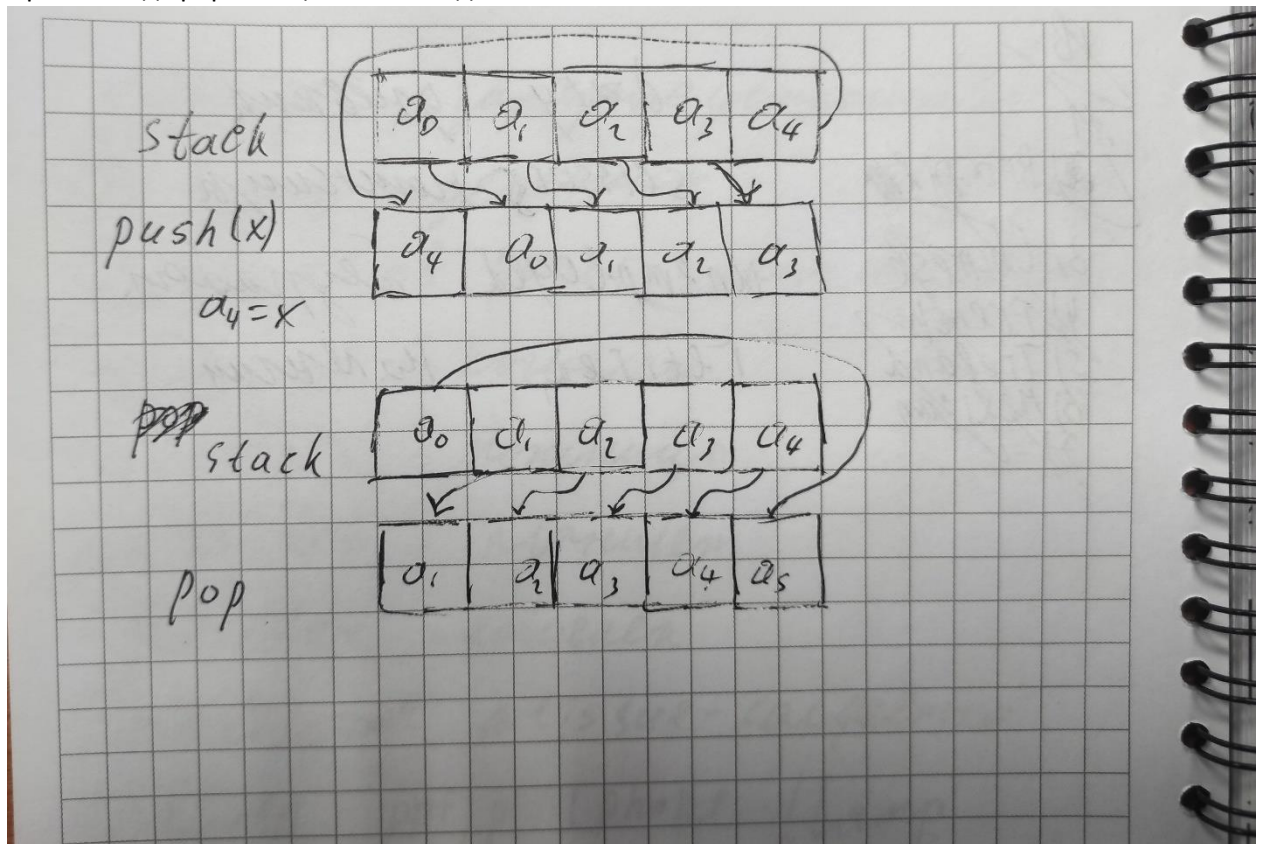 stack a₀ a₁ a₂ a₃ a₄
push(x) a₄ a₀ a₁ a₂ a₃
a₄=x
stack a₀ a₁ a₂ a₃ a₄
pop a₁ a₂ a₃ a₄ a₅